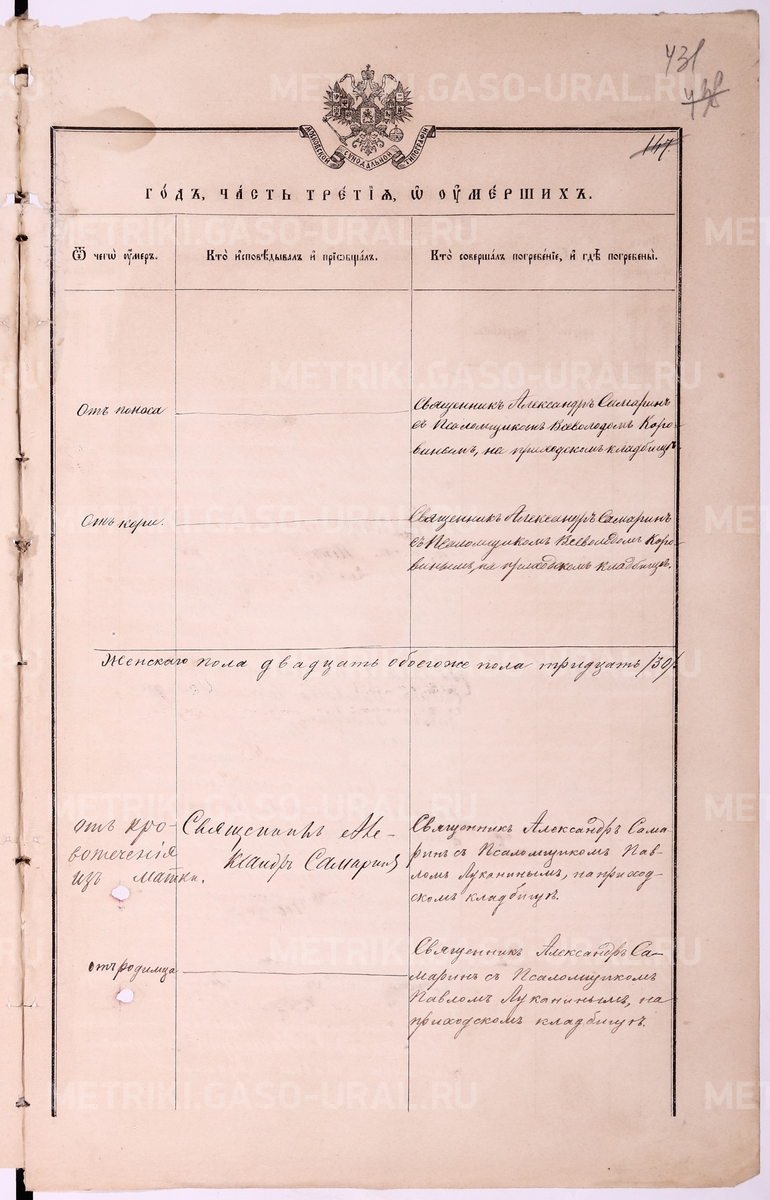 431
147.
МОСКОВСКОЙ СУНОДАЛЬНОЙ ТИПОГРАФІИ
ГО́ДЪ, ЧА́СТЬ ТРЕ́ТІѦ, Ѡ҆ ОУ҆МЕ́РШИХЪ.
Ѿ чегѡ̀ оу҆́меръ.
Кто̀ и҆сповѣ́дывалъ и҆ прїѡбща́лъ.
Кто̀ соверша́лъ погребе́нїе, и҆ гдѣ̀ погребены̀.
Отъ поноса
Священникъ Александръ Самаринъ
съ Псаломщикомъ Всеволодомъ Коро-
винымъ, на приходскомъ кладбищѣ
Отъ кори.
Священникъ Александръ Самаринъ
съ Псаломщикомъ Всеволодомъ Коро-
винымъ, на приходскомъ кладбищѣ.
Женскаго пола двадцать обоегоже пола тридцать /30/.
отъ кро-
вотеченія
изъ матки.
Священникъ Але-
ксандръ Самаринъ
Священникъ Александръ Сама-
ринъ съ Псаломщикомъ Пав-
ломъ Луканинымъ, на приход-
скомъ кладбищѣ.
отъ родимца
Священникъ Александръ Са-
маринъ съ Псаломщикомъ
Павломъ Луканинымъ, на
приходскомъ кладбищѣ.
METRIKI.GASO-URAL.RU